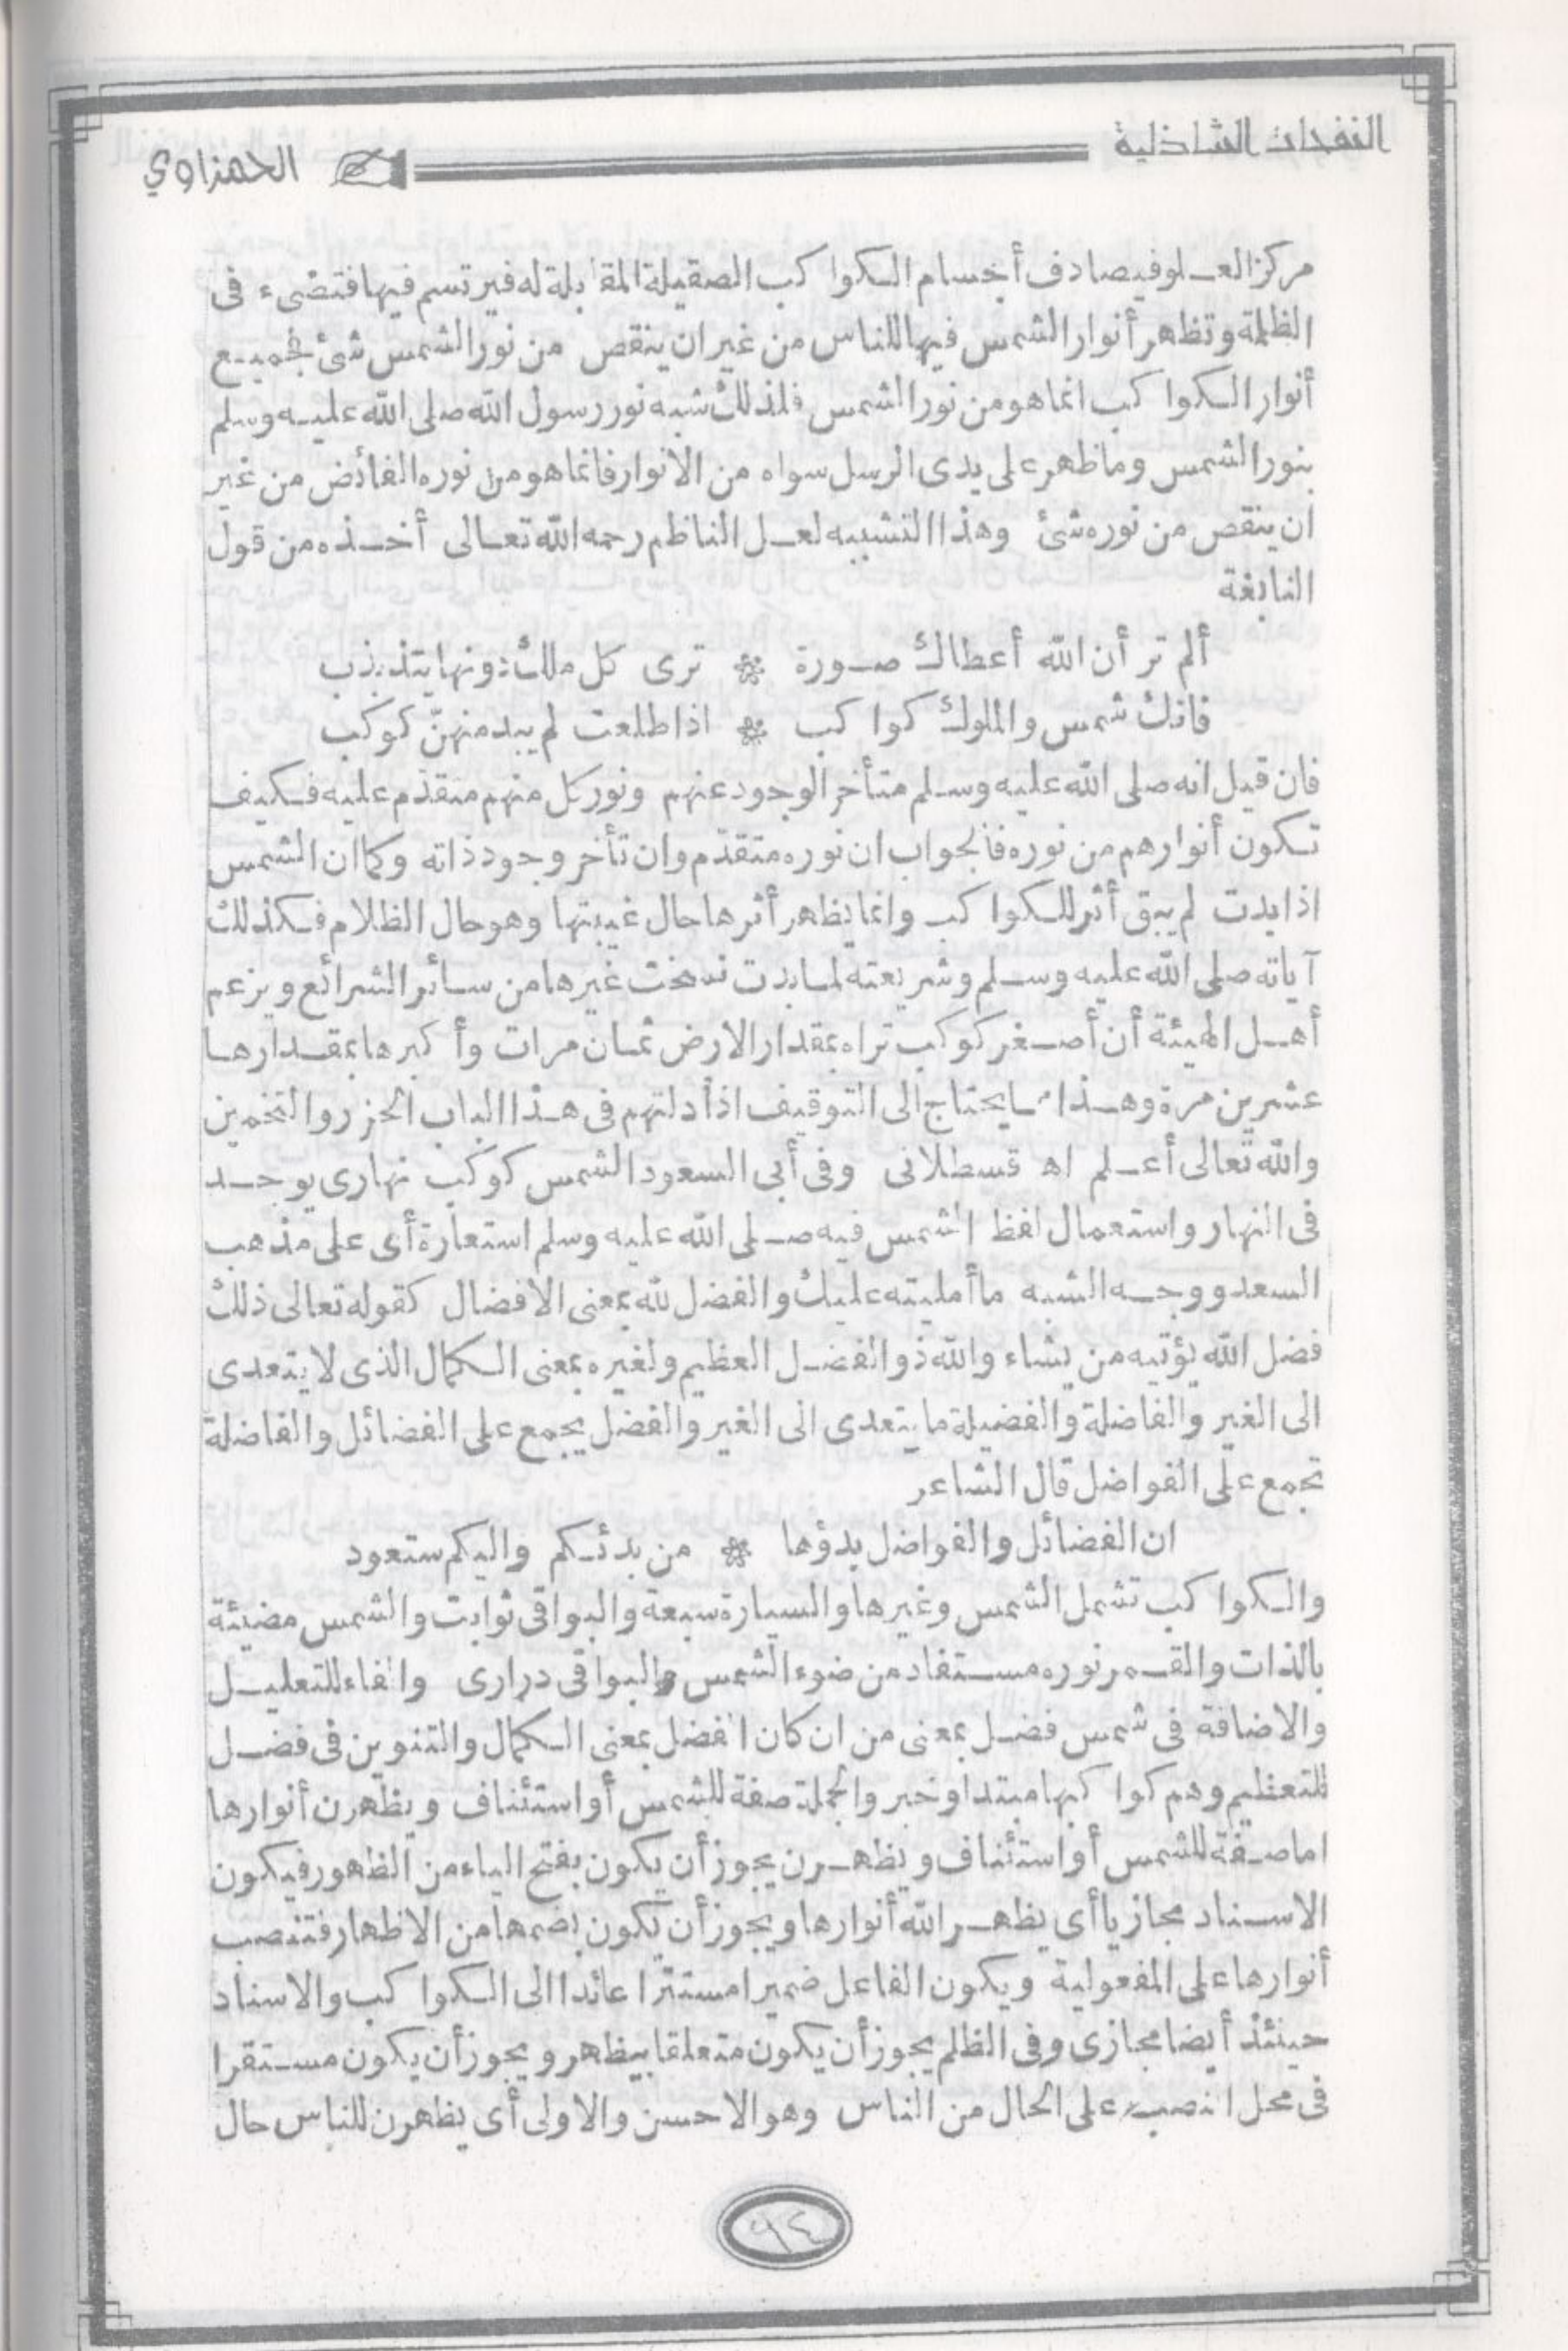 النفحات الشاذلية
الحمزاوي
مركز العلو فيصادف أجسام الكواكب الصقيلة المقابلة له فيرتسم فيها فتضىء فى
الظلمة وتظهر أنوار الشمس فيها للناس من غير ان ينقص من نور الشمس شئ فجميع
أنوار الكواكب انما هو من نور الشمس فلذلك شبه نور رسول الله صلى الله عليه وسلم
بنور الشمس وما ظهر على يدى الرسل سواه من الأنوار فانما هو من نوره الفائض من غير
ان ينقص من نوره شئ وهذا التشبيه لعل الناظم رحمه الله تعالى أخذه من قول
النابغة
ألم تر أن الله أعطاك صورة * ترى كل ملك دونها يتذبذب
فانك شمس والملوك كواكب * اذا طلعت لم يبد منهنّ كوكب
فان قيل انه صلى الله عليه وسلم متأخر الوجود عنهم ونور كل منهم متقدّم عليه فكيف
تكون أنوارهم من نوره فالجواب ان نوره متقدّم وان تأخر وجود ذاته وكما ان الشمس
اذا بدت لم يبق أثر للكواكب وانما يظهر أثرها حال غيبتها وهو حال الظلام فكذلك
آياته صلى الله عليه وسلم وشريعته لما بدت نسخت غيرها من سائر الشرائع ويزعم
أهل الهيئة أن أصغر كوكب تراه بمقدار الارض ثمان مرات وأكبرها بمقدارها
عشرين مرة وهذا مما يحتاج الى التوقيف اذ أدلتهم فى هذا الباب الحزر والتخمين
والله تعالى أعلم اه قسطلانى وفى أبى السعود الشمس كوكب نهارى يوجد
فى النهار واستعمال لفظ الشمس فيه صلى الله عليه وسلم استعارة أى على مذهب
السعد ووجه الشبه ما أمليته عليك والفضل لله بمعنى الافضال كقوله تعالى ذلك
فضل الله يؤتيه من يشاء والله ذو الفضل العظيم ولغيره بمعنى الكمال الذى لا يتعدى
الى الغير والفاضلة والفضيلة ما يتعدى الى الغير والفضل يجمع على الفضائل والفاضلة
تجمع على الفواضل قال الشاعر
ان الفضائل والفواضل بدؤها * من بدئكم واليكم ستعود
والكواكب تشمل الشمس وغيرها والسيارة سبعة والبواقى ثوابت والشمس مضيئة
بالذات والقمر نوره مستفاد من ضوء الشمس والبواقى درارى والفاء للتعليل
والاضافة فى شمس فضل بمعنى من ان كان الفضل بمعنى الكمال والتنوين فى فضل
للتعظيم وهم كواكبها مبتدا وخبر والجملة صفة للشمس أو استئناف ويظهرن أنوارها
اما صفة للشمس أو استئناف ويظهرن يجوز أن يكون بفتح الياء من الظهور فيكون
الاسناد مجازيا أى يظهر الله أنوارها ويجوز أن يكون بضمها من الاظهار فتنصب
أنوارها على المفعولية ويكون الفاعل ضميرا مستترا عائدا الى الكواكب والاسناد
حينئذ أيضا مجازى وفى الظلم يجوز أن يكون متعلقا بيظهر ويجوز أن يكون مستقرا
فى محل نصب على الحال من الناس وهو الاحسن والاولى أى يظهرن للناس حال
٩٤